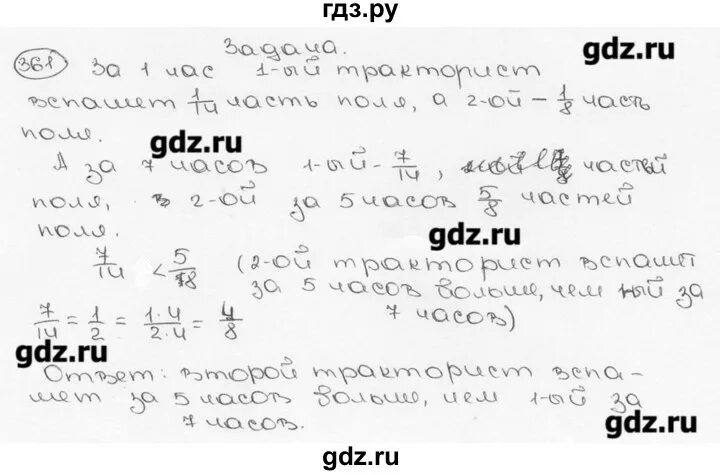 гдз.ру
Задача.
gdz.ru
361 За 1 час 1-ый тракторист
вспашет 1/14 часть поля, а 2-ой - 1/8 часть
поля.
gdz.ru
А за 7 часов 1-ый - 7/14, частей
поля, 2-ой за 5 часов 5/8 частей
поля.
gdz.ru
7/14 < 5/8 (2-ой тракторист вспашет
за 5 часов больше, чем за
7/14 = 1/2 = 1·4/2·4 = 4/8 7 часов)
gdz.ru
Ответ: второй тракторист вспа-
шет за 5 часов больше, чем 1-ый за
7 часов.
gdz.ru
gdz.ru